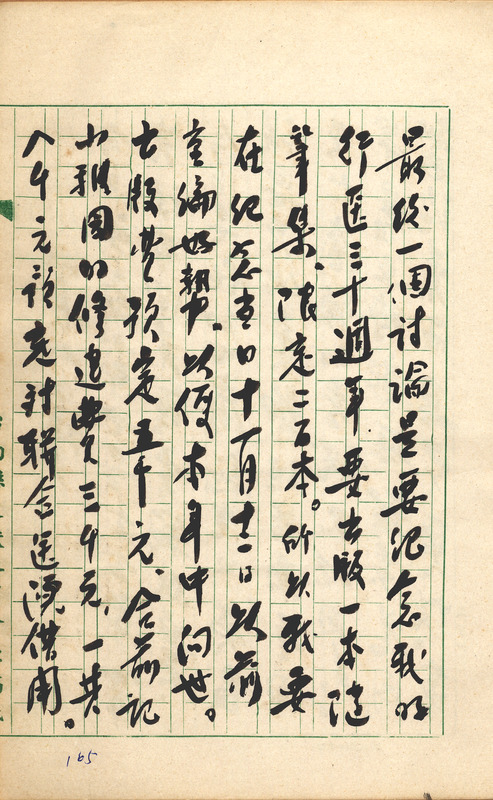 最後一個討論是要紀念我的
行医三十週年要出版一本隨
筆集、限定二百本。所以我要
在紀念当日十一月十二日以前
全編好契。以便本年中问世。
出版費預定五千元、合前記
小雅园的修造費三千元、一共
八千元預定対联合医院借用。
165